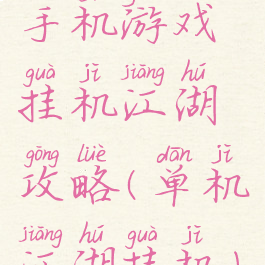 手机游戏
guà jī jiāng hú
挂机江湖
gōng lüè dān jī
攻略(单机
jiāng hú guà jī
江湖挂机)